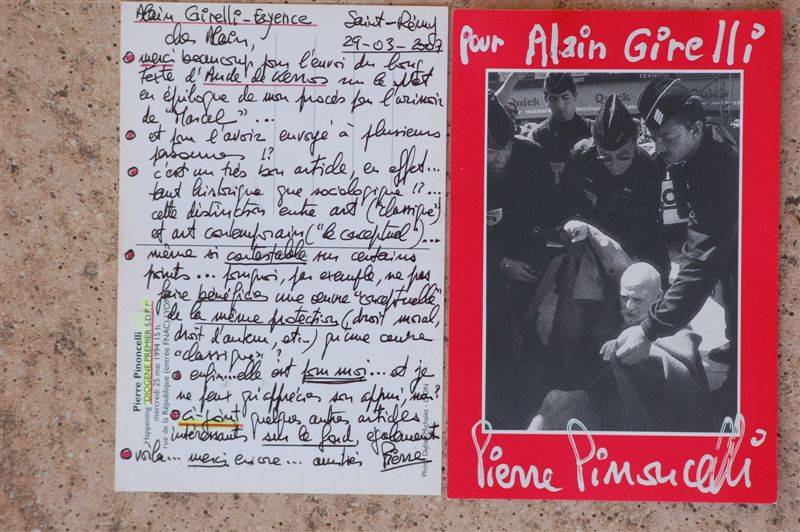 Alain Girelli-Esyence
Saint-Rémy
29-03-2007
cher Alain,
merci beaucoup pour l'envoi du long
texte d'Aude de Kerros sur le
en épilogue de mon procès pour l'urinoir
de "Marcel"...
et pour l'avoir envoyé à plusieurs
personnes !?
c'est un très bon article, en effet...
tant historique que sociologique !?...
cette distinction entre art ("classique")
et art contemporain ("le conceptuel")...
même si contestable sur certains
points... pourquoi, par exemple, ne pas
faire bénéficier une œuvre "conceptuelle"
de la même protection (droit moral,
droit d'auteur, etc-) qu'une œuvre
"classique" ?
enfin... elle est pour moi... et je
ne peux qu'apprécier son appui, non?
ci-joint quelques autres articles
intéressants sur le fond, également
voilà... merci encore... amitiés Pierre
Pierre Pinoncelli
Happening "DIOGENE PREMIER S.D.F."
mercredi 25 mai 1994 15 h.
rue de la République (entrée FNAC) LYON
pour Alain Girelli
Quick
Quick
Pierre Pinoncelli